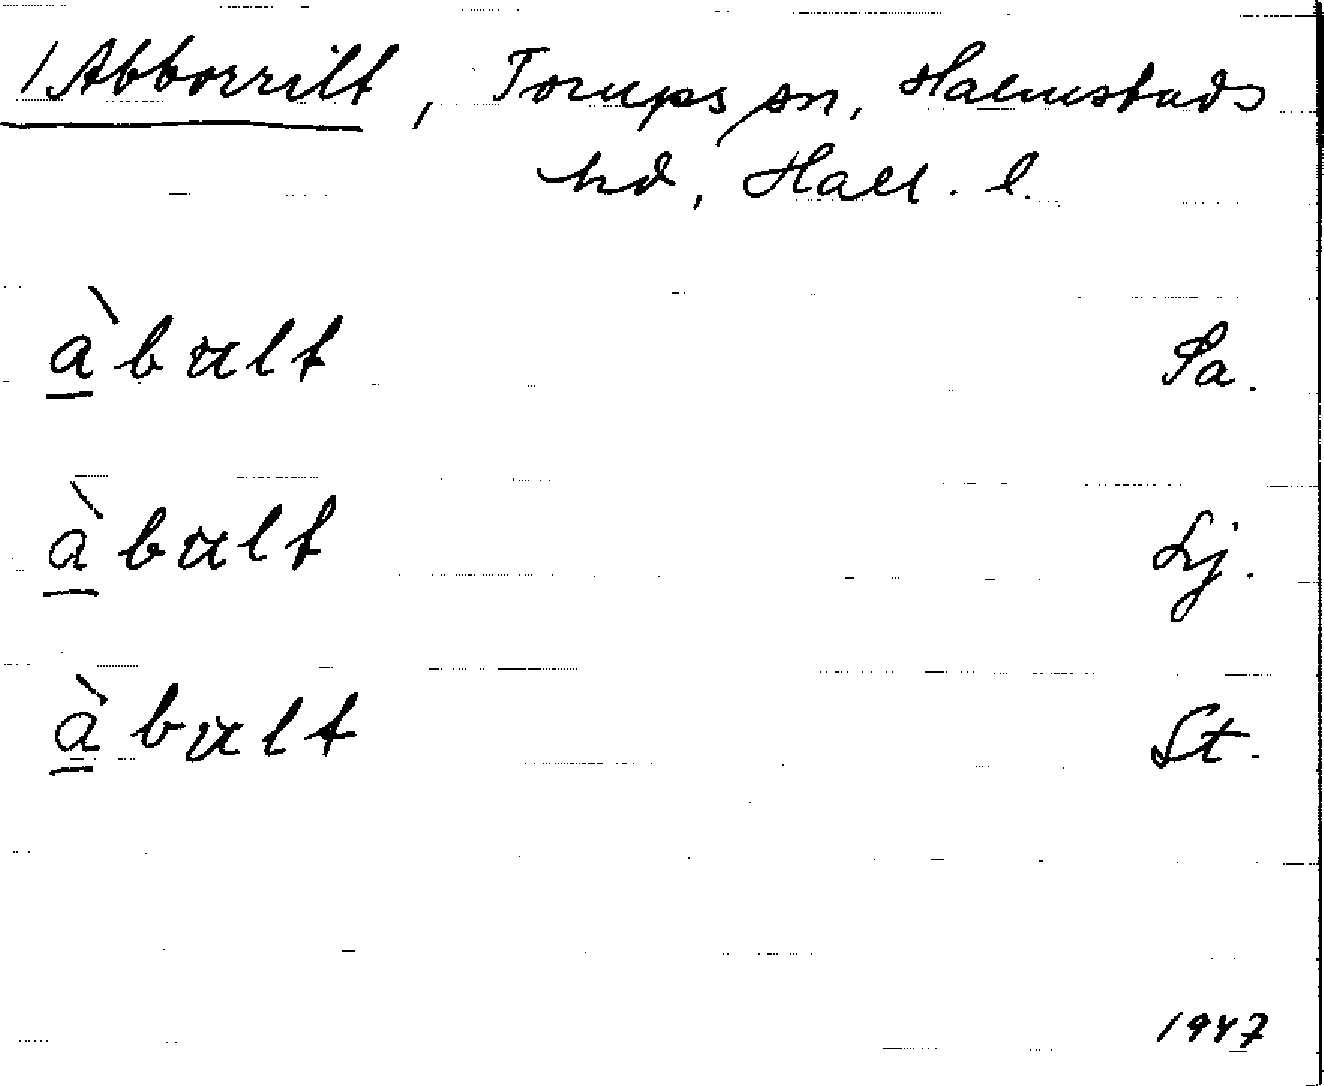 1 Abborrilt, Torups sn, Halmstads
hd, Hall. l.
à̲bult Sa.
à̲bult Lj.
à̲bult St.
1947